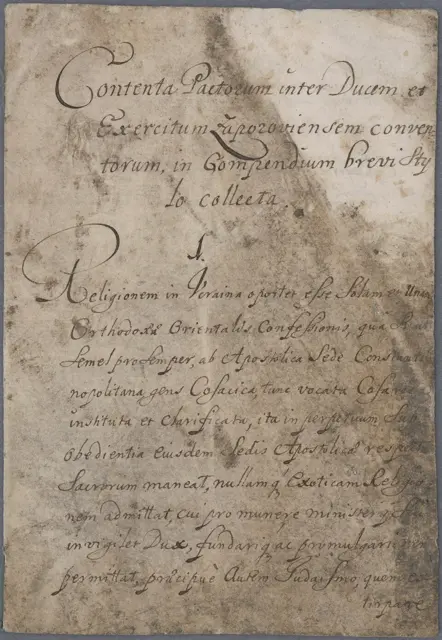 Contenta Pactorum inter Ducem et
Exercitum Zaporoviensem conven
torum, in Compendium brevi Sty
lo collecta.
1.
Religionem in Ucraina oportet esse Solam et Unam
Orthodoxæ Orientalis Confessionis, quâ
Semel pro semper, ab Apostolica Sede Constanti
nopolitana, gens Cosacica, tunc vocata
instituta et Clarificata, ita in perpetuum Sub
obedientia eiusdem Sedis Apostolicæ respectu
Sacrorum maneat, nullamq Exoticam Religio
nem admittat, cui pro munere
invigilet Dux, fundariq ac promulgari non
permittat, præcipuè Autem Judaismo, quem ex
tirpare